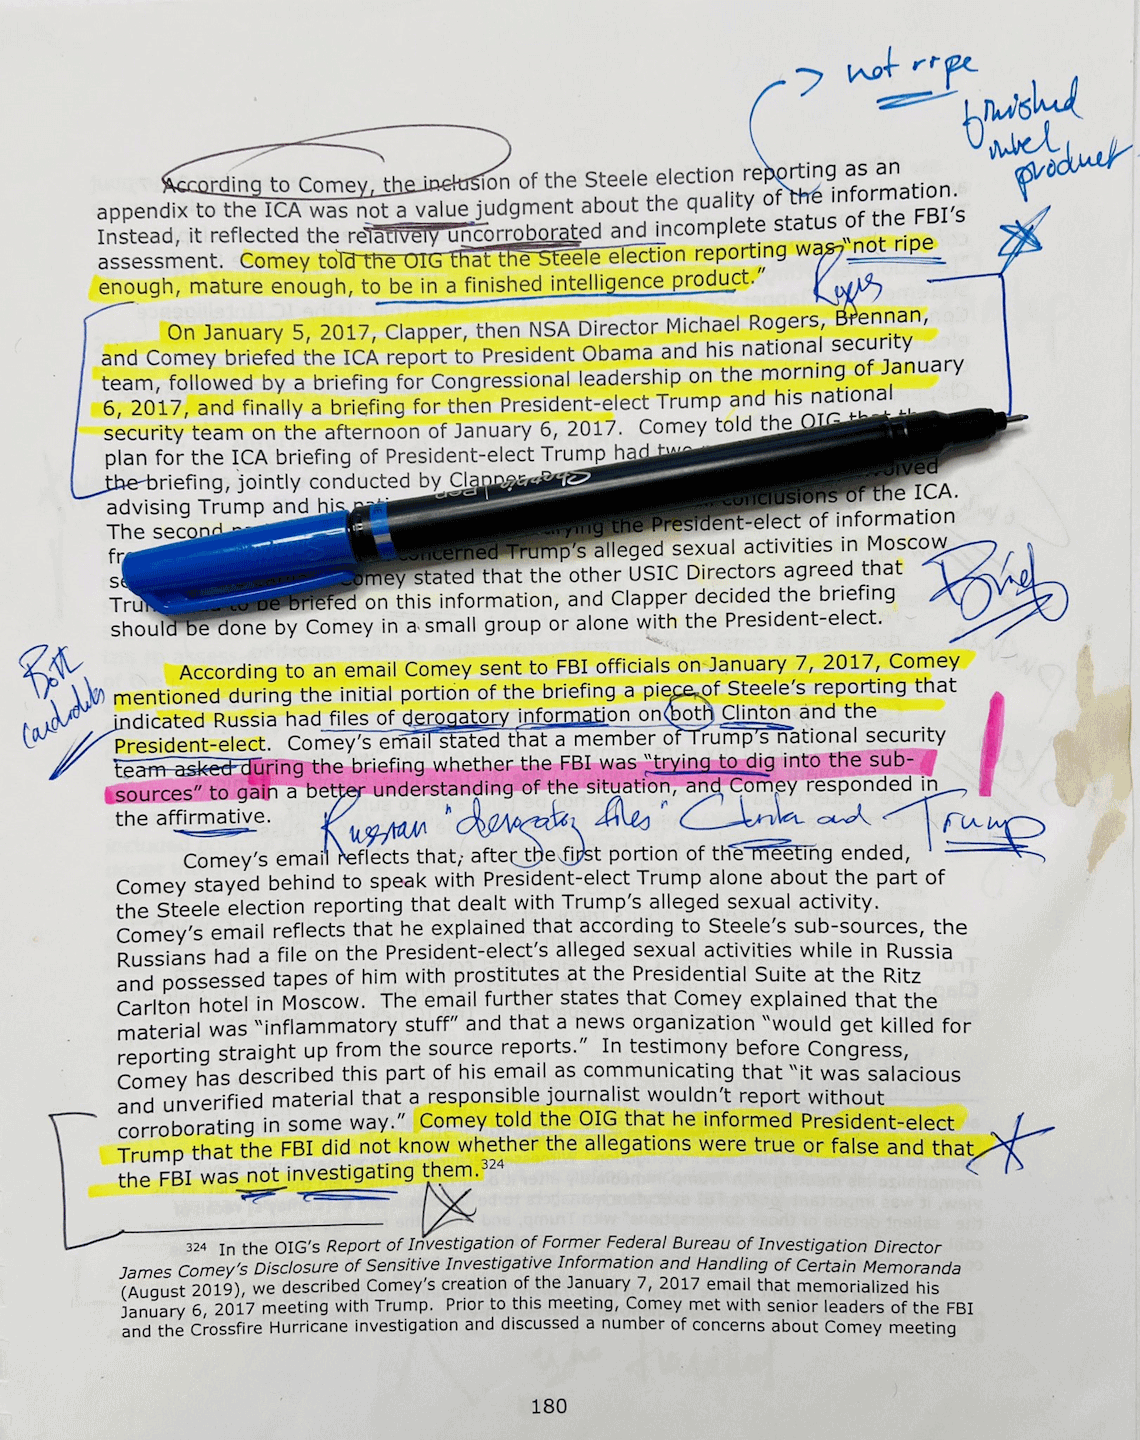 not ripe
finished
intel
product
According to Comey, the inclusion of the Steele election reporting as an
appendix to the ICA was not a value judgment about the quality of the information.
Instead, it reflected the relatively uncorroborated and incomplete status of the FBI's
assessment. Comey told the OIG that the Steele election reporting was "not ripe
enough, mature enough, to be in a finished intelligence product."
Rogers
On January 5, 2017, Clapper, then NSA Director Michael Rogers, Brennan,
and Comey briefed the ICA report to President Obama and his national security
team, followed by a briefing for Congressional leadership on the morning of January
6, 2017, and finally a briefing for then President-elect Trump and his national
security team on the afternoon of January 6, 2017. Comey told the OIG that the
plan for the ICA briefing of President-elect Trump had two
the briefing, jointly conducted by Clapper,
advising Trump and his conclusions of the ICA.
The second the President-elect of information
concerned Trump's alleged sexual activities in Moscow
Comey stated that the other USIC Directors agreed that
be briefed on this information, and Clapper decided the briefing
should be done by Comey in a small group or alone with the President-elect.
Sharpie PEN
Brief
Both
candidates
According to an email Comey sent to FBI officials on January 7, 2017, Comey
mentioned during the initial portion of the briefing a piece of Steele's reporting that
indicated Russia had files of derogatory information on both Clinton and the
President-elect. Comey's email stated that a member of Trump's national security
team asked during the briefing whether the FBI was "trying to dig into the sub-
sources" to gain a better understanding of the situation, and Comey responded in
the affirmative.
Russian "derogatory files" Clinton and Trump
Comey's email reflects that, after the first portion of the meeting ended,
Comey stayed behind to speak with President-elect Trump alone about the part of
the Steele election reporting that dealt with Trump's alleged sexual activity.
Comey's email reflects that he explained that according to Steele's sub-sources, the
Russians had a file on the President-elect's alleged sexual activities while in Russia
and possessed tapes of him with prostitutes at the Presidential Suite at the Ritz
Carlton hotel in Moscow. The email further states that Comey explained that the
material was "inflammatory stuff" and that a news organization "would get killed for
reporting straight up from the source reports." In testimony before Congress,
Comey has described this part of his email as communicating that "it was salacious
and unverified material that a responsible journalist wouldn't report without
corroborating in some way." Comey told the OIG that he informed President-elect
Trump that the FBI did not know whether the allegations were true or false and that
the FBI was not investigating them.324
324 In the OIG's Report of Investigation of Former Federal Bureau of Investigation Director
James Comey's Disclosure of Sensitive Investigative Information and Handling of Certain Memoranda
(August 2019), we described Comey's creation of the January 7, 2017 email that memorialized his
January 6, 2017 meeting with Trump. Prior to this meeting, Comey met with senior leaders of the FBI
and the Crossfire Hurricane investigation and discussed a number of concerns about Comey meeting
180